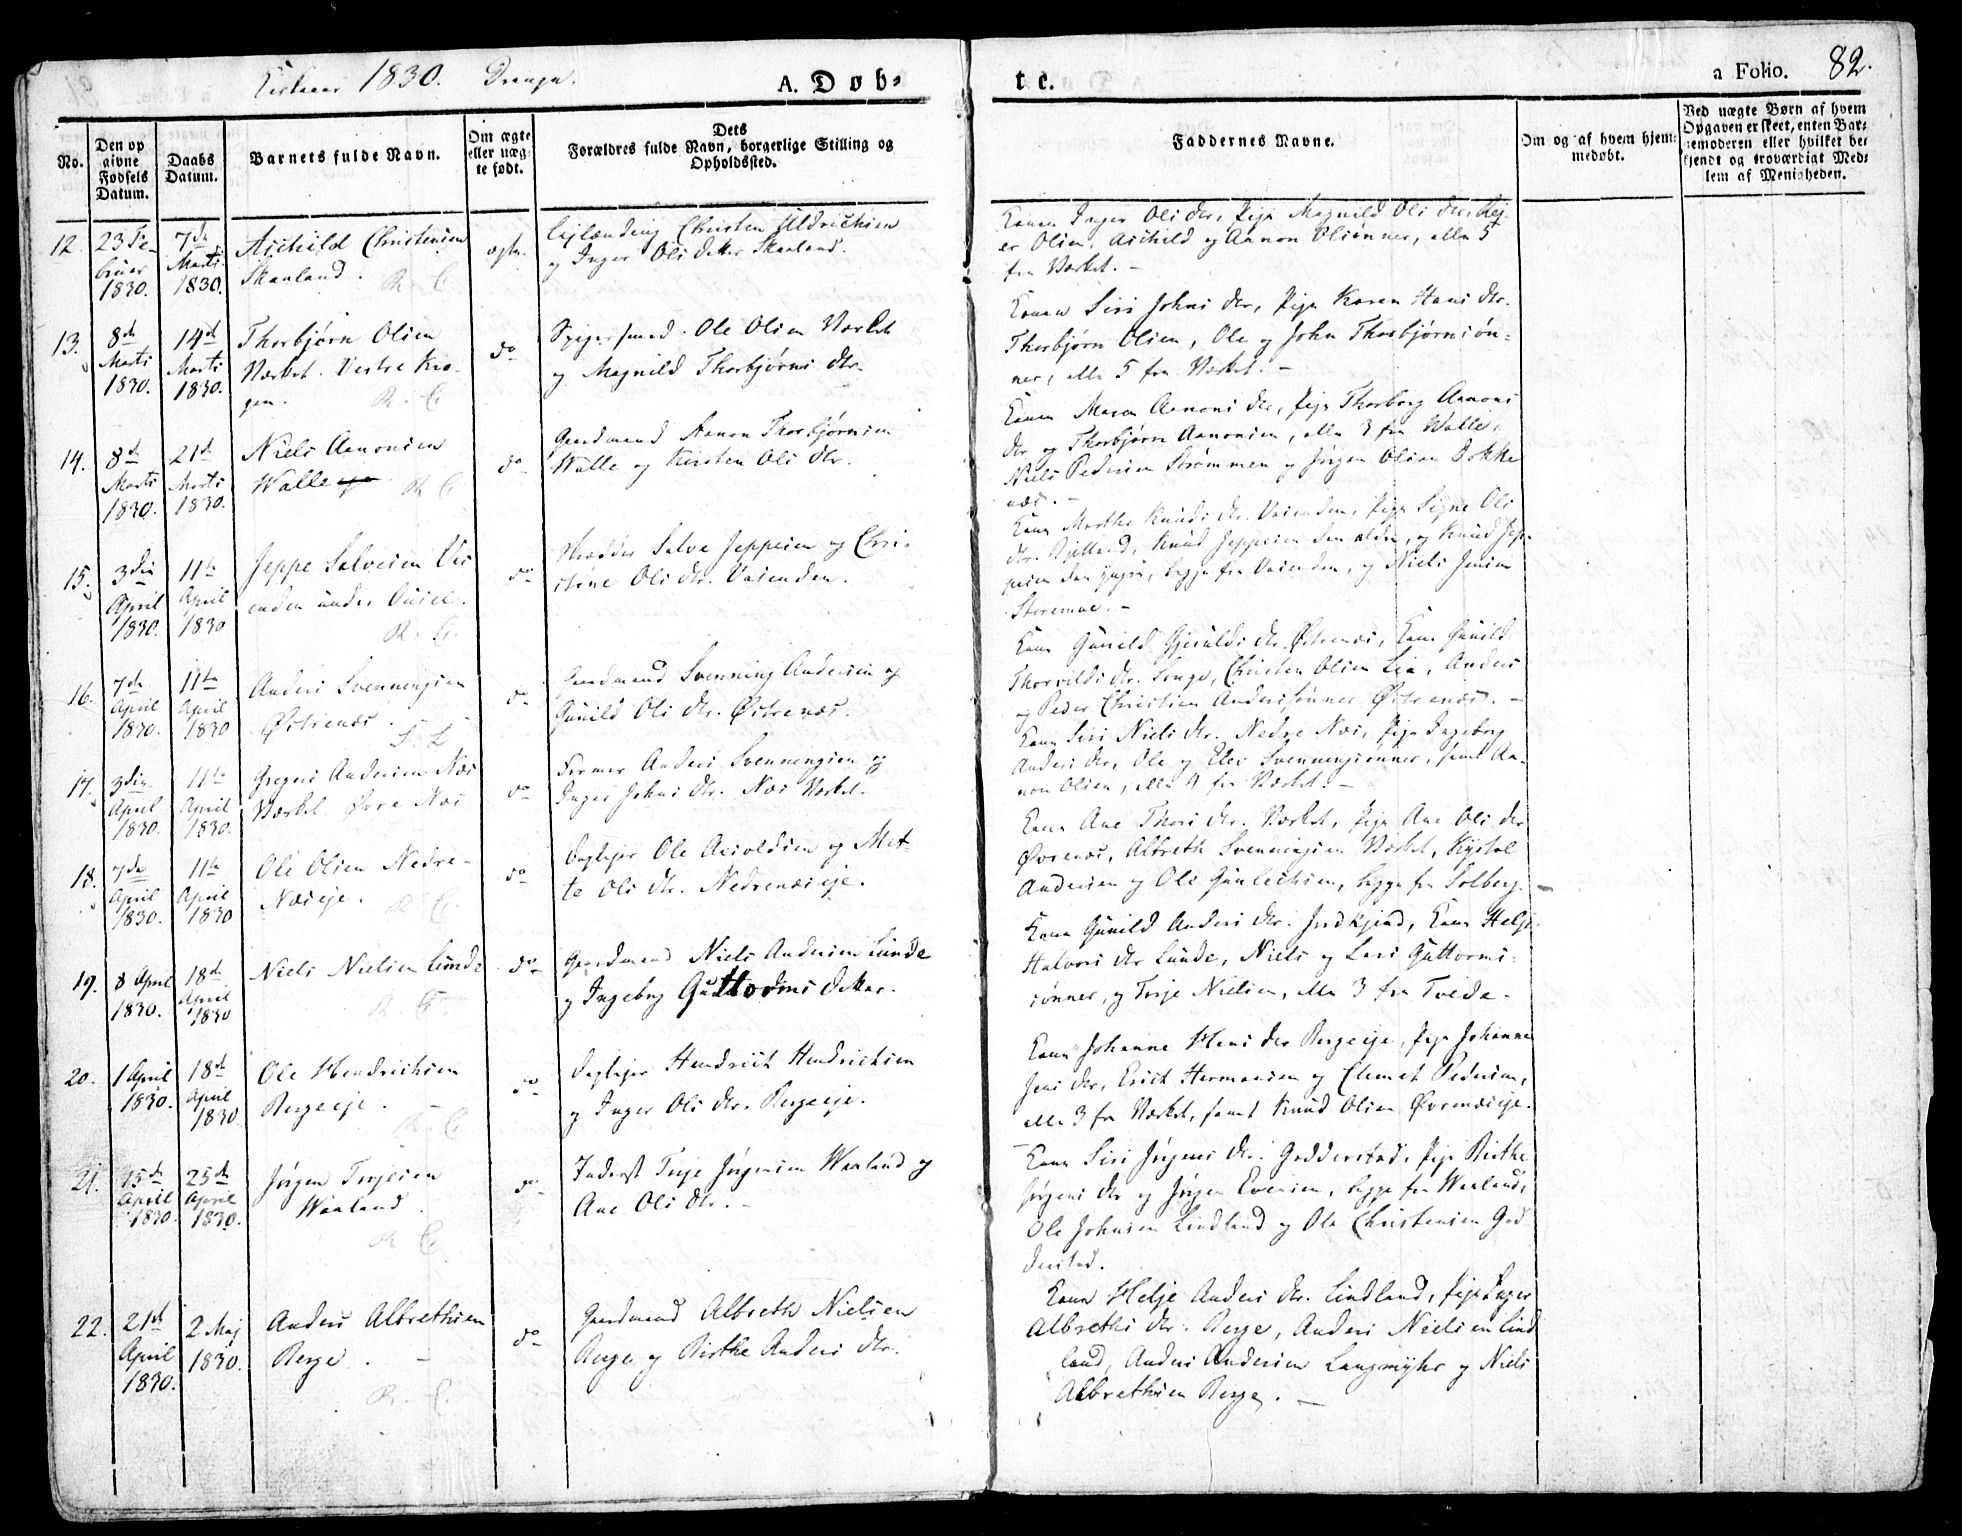 Kirkeaar 1830. Drenge.
A. Døb-
te.
a Folio. 82.
No.
Den op
givne
Fødsels
Datum.
Daabs
Datum.
Barnets fulde Navn.
Om ægte
eller uæg-
te født.
Dets
Forældres fulde Navn, borgerlige Stilling og
Opholdssted.
Faddernes Navne.
Om og af hvem hjem-
medøbt.
Ved uægte Børn af hvem
Opgaven er skeet, enten Bar-
nemoderen eller hvilket be-
kjendt og troværdigt Med-
lem af Menigheden.
12.
23 Fe-
bruar
1830.
7de
Marti
1830.
Aschild Christensen
Skaaland.
ægte.
Lejlænding Christen Uldrichsen
og Inger Olsdatter Skaaland.
Konen Inger Olsdtr, Pige Magnild Olsdtr,
er Olsen, Aschild og Aanon Olsønner, alle 5
fra Værket. -
13.
8de
Marti
1830.
14de
Marti
1830.
Thorbjørn Olsen
Værket. Vestre Kro-
gen.
do
Spigersmed Ole Olsen Værket
og Magnild Thorbjørns dtr.
Konen Siri Johns dtr, Pige Karen Hans dtr.
Thorbjørn Olsen, Ole og John Thorbjørnsøn-
ner, alle 5 fra Værket. -
14.
8de
Marti
1830.
21de
Marti
1830.
Niels Aanonsen
Walle
do
Gaardmand Aanon Thorbjørnsen
Walle og Kirsten Ols dtr.
Konen Maren Aanons dtr, Pige Thorborg Aanons
dtr og Thorbjørn Aanonsen, alle 3 fra Walle,
Niels Pedersen Strømmen og Jørgen Olsen Dokke
næs. -
15.
3die
April
1830.
11te
April
1830
Jeppe Salvesen Vas
enden under Ousel.
do
Skrædder Salve Jeppesen og Chri-
stine Ols dtr. Vasenden.
Kone Marthe Knuds dtr. Vasenden, Pige Signe Ols
dtr. Fjelland, Knud Jeppesen den ældre, og Knud Jep-
pesen den yngre, begge fra Vasenden, og Niels Jensen
Storemoe. -
16.
7de
April
1830.
11te
April
1830
Anders Svenningsen
Østrenæs.
do
Gaardmand Svenning Andersen og
Gunild Ols dtr. Østrenæs.
Kone Gunild Gjeruldsdtr. Østrenæs, Kone Gunild
Thorvilds dtr. Songe, Christen Olsen Lia, Anders
og Peder Christian Anderssønner Østrenæs. -
17.
3die
April
1830.
11te
April
1830.
Gregers Andersen Næs
Værket Øvre Næs
do
Former Anders Svenningsen og
Inger Johns dtr. Næs Værket.
Kone Siri Niels dtr. Nedre Næs, Pige Ingeborg
Anders dtr, Ole og Elev Svenningsønner, samt Aa-
non Olsen, alle 4 fra Værket. -
18.
7de
April
1830.
11te
April
1830
Ole Olsen Nedre-
Næseje.
do
Daglejer Ole Asvoldsen og Met-
te Ols dtr. Nedrenæseje.
Kone Ane Thors dtr. Værket, Pige Ane Ols dtr
Øvrenæs, Albreth Svenningsen Værket, Kjøstol
Andersen og Ole Gunlechsen, begge fra Solberg. -
19.
8 April
1830.
18de
April
1830
Niels Nielsen Lunde
do
Gaardmand Niels Andersen Lunde
og Ingeborg Guttorms datter.
Kone Gunild Anders dtr. Indkjend, Kone Helje
Halvors dtr Lunde, Niels og Lars Guttorms-
sønner, og Terje Nielsen, alle 3 fra Tvede.
20.
1 April
1830.
18de
April
1830
Ole Hendrichsen
Bergeeje.
do
Daglejer Hendrich Hendrichsen
og Inger Ols dtr. Bergeeje.
Kone Johanne Hans dtr Bergeeje, Pige Johanne
Jens dtr, Erich Hermansen og Clemet Pedersen,
alle 3 fra Værket, samt Knud Olsen Øvrenæseje.
21.
15de
April
1830.
25de
April
1830.
Jørgen Terjesen
Waaland.
do
Inderst Terje Jørgensen Waaland og
Ane Ols dtr. -
Kone Siri Jørgens dtr. Godderstad, Pige Birthe
Jørgens dtr og Jørgen Evensen, begge fra Waaland,
Ole Johnsen Lindland og Ole Christensen God
derstad.
22.
21de
April
1830.
2 Maj
1830.
Anders Albrethsen
Berge. -
do
Gaardmand Albreth Nielsen
Berge og Birthe Anders dtr.
Kone Helje Anders dtr. Lindland, Pige Inger
Albreths dtr. Berge, Anders Nielsen Lind
land, Anders Andersen Langmyhr og Niels
Albrethsen Berge. -